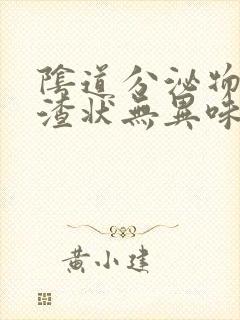 陰道分泌物
渣狀無異味
黃小建